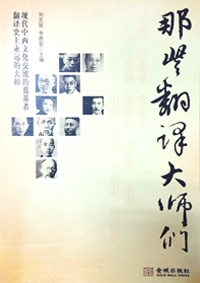 那些翻译大师们
刘宏照 李西安 主编
现代中西文化交流的奠基者
翻译史上永远的大师
金城出版社
GOLD WALL PRESS